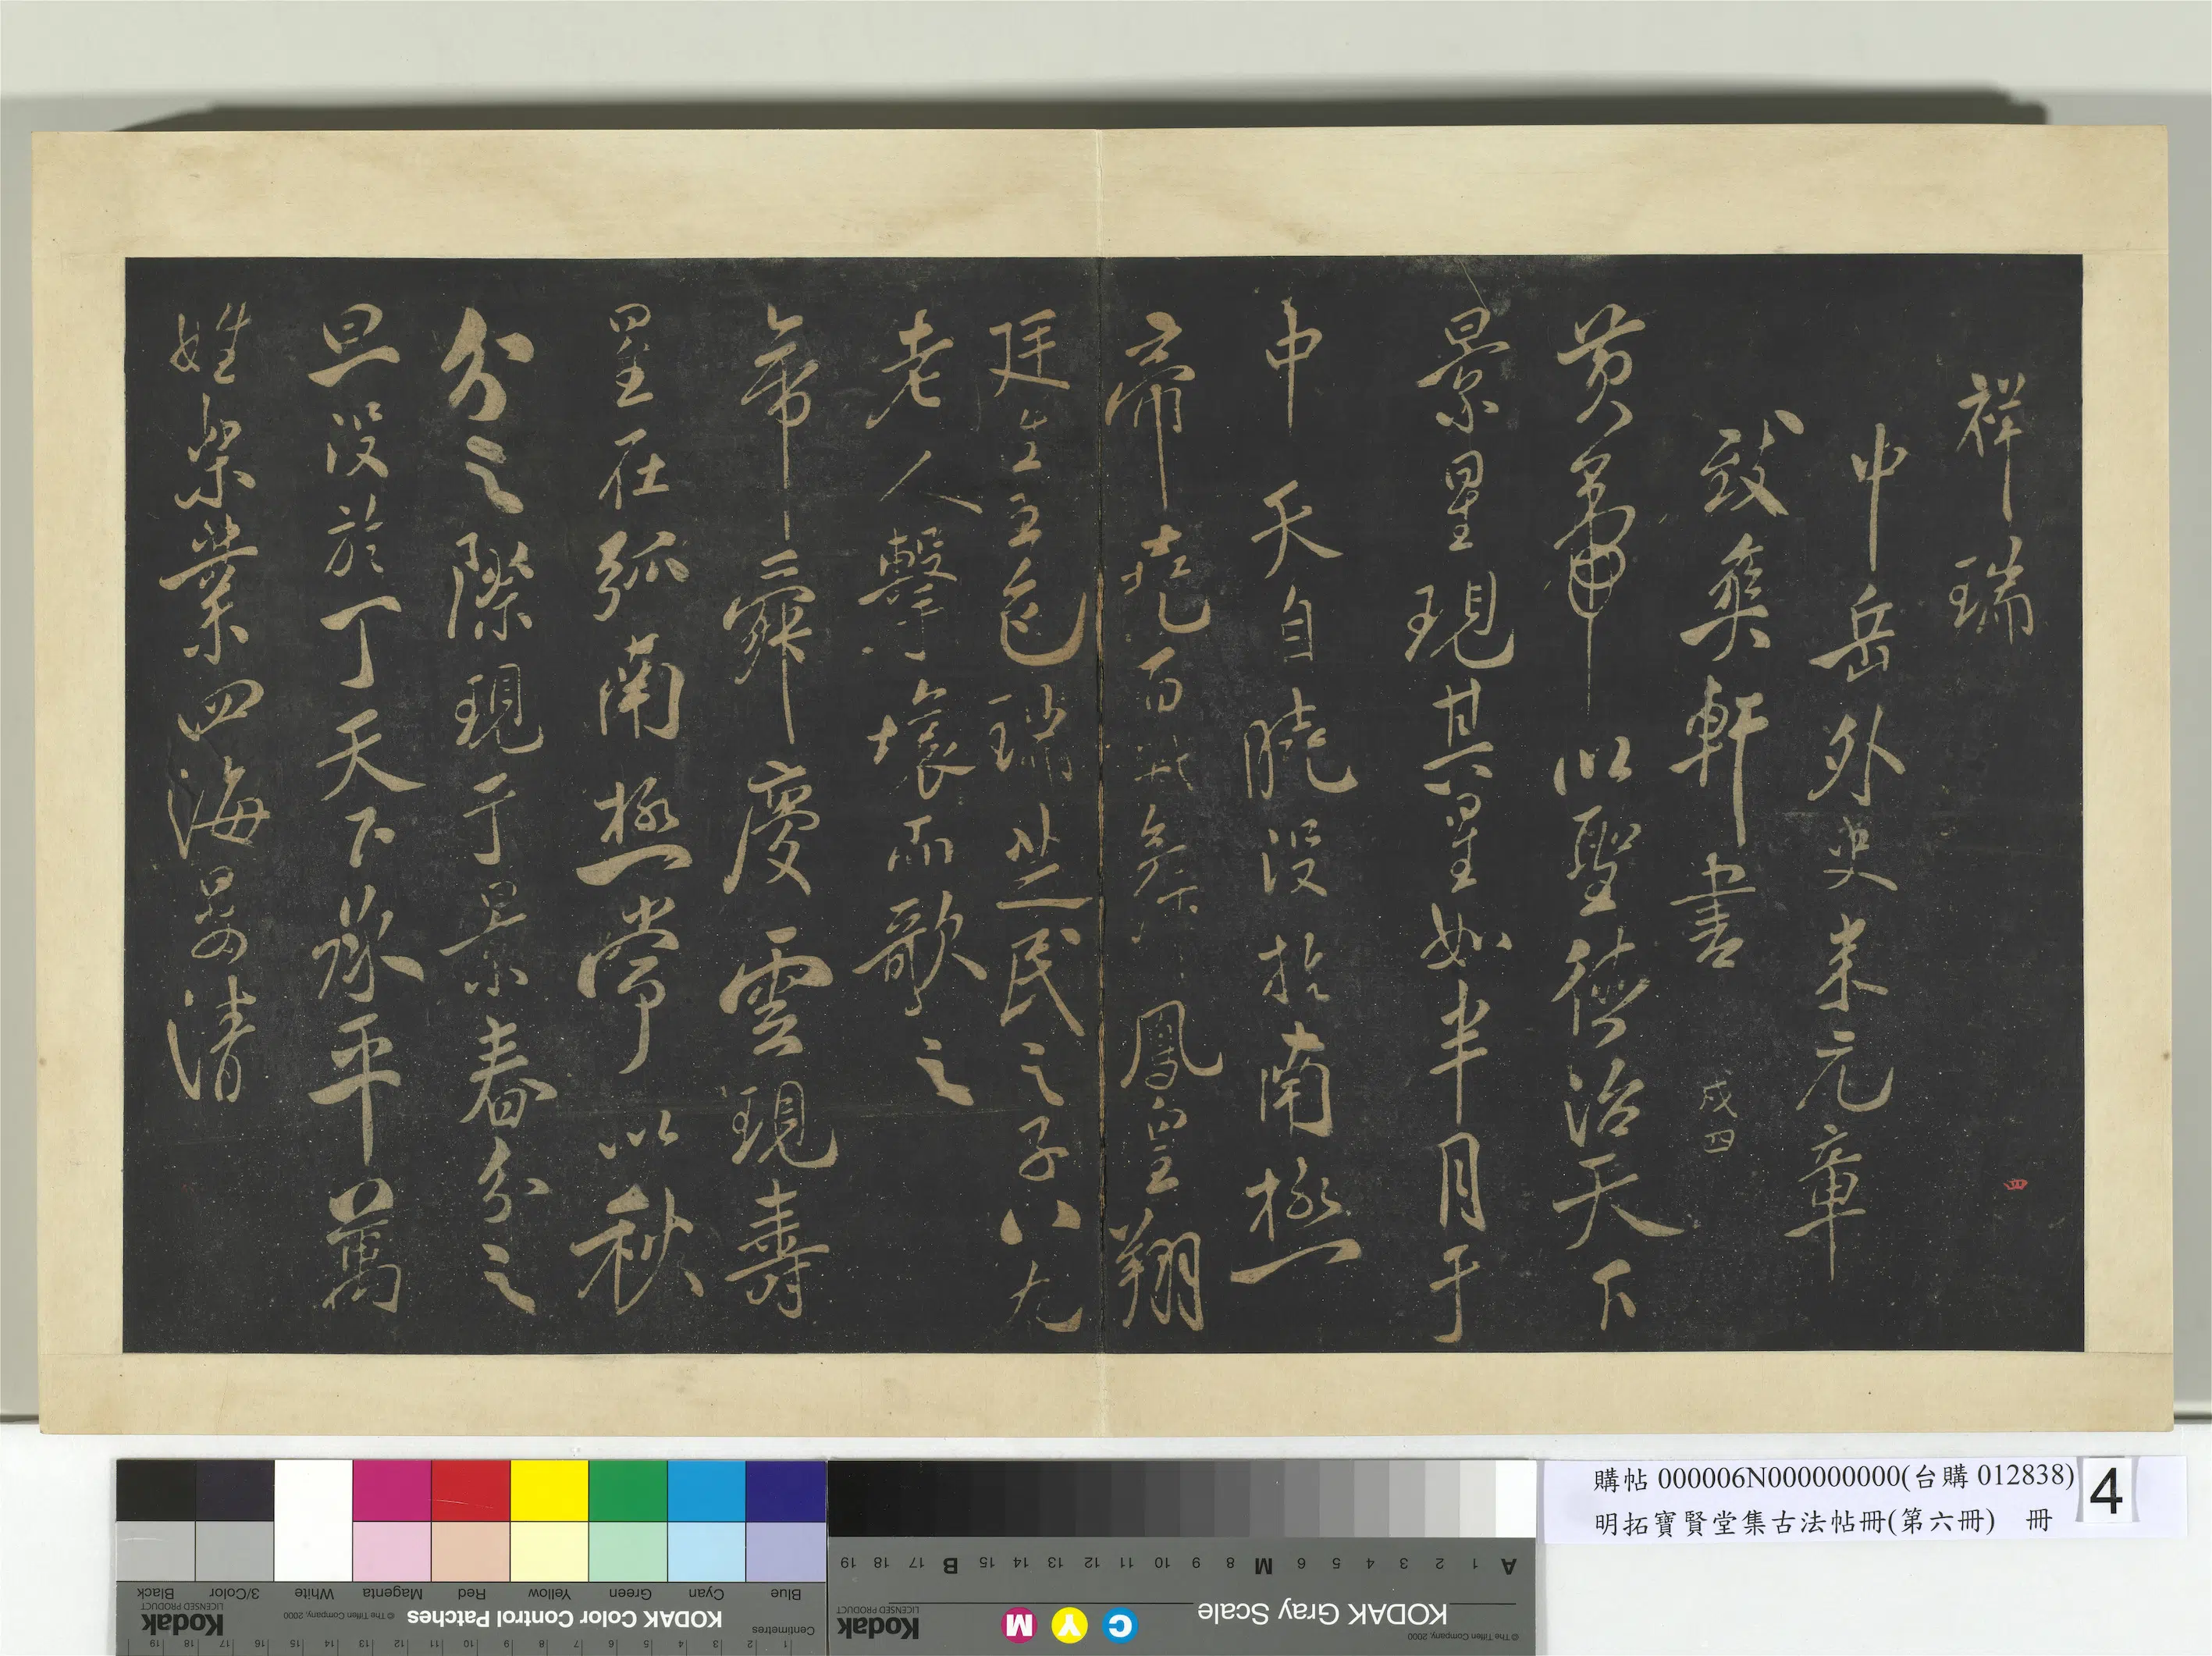 祥瑞
中岳外史米元章
致爽軒書
戍四
四
黃帝以聖德治天下
景星現其星如半月于
中天自曉没於南極
帝堯百獸舞鳳皇翔
廷生五色瑞芝民之子八九
老人擊壤而歌之
帝舜慶雲現壽
星在弧南極常以秋
分之際現于景春分之
旦没於丁天下承平萬
姓樂業四海晏清
購帖 000006N000000000(台購 012838)
明拓寶賢堂集古法帖冊(第六冊) 冊
4
Blue Cyan Green Yellow Red Magenta White 3/Color Black
KODAK Color Control Patches
© The Tiffen Company, 2000
Kodak
LICENSED PRODUCT
Centimetres
A 1 2 3 4 5 6 M 8 9 10 11 12 13 14 15 B 17 18 19
KODAK Gray Scale
C Y M
Kodak
LICENSED PRODUCT
© The Tiffen Company, 2000